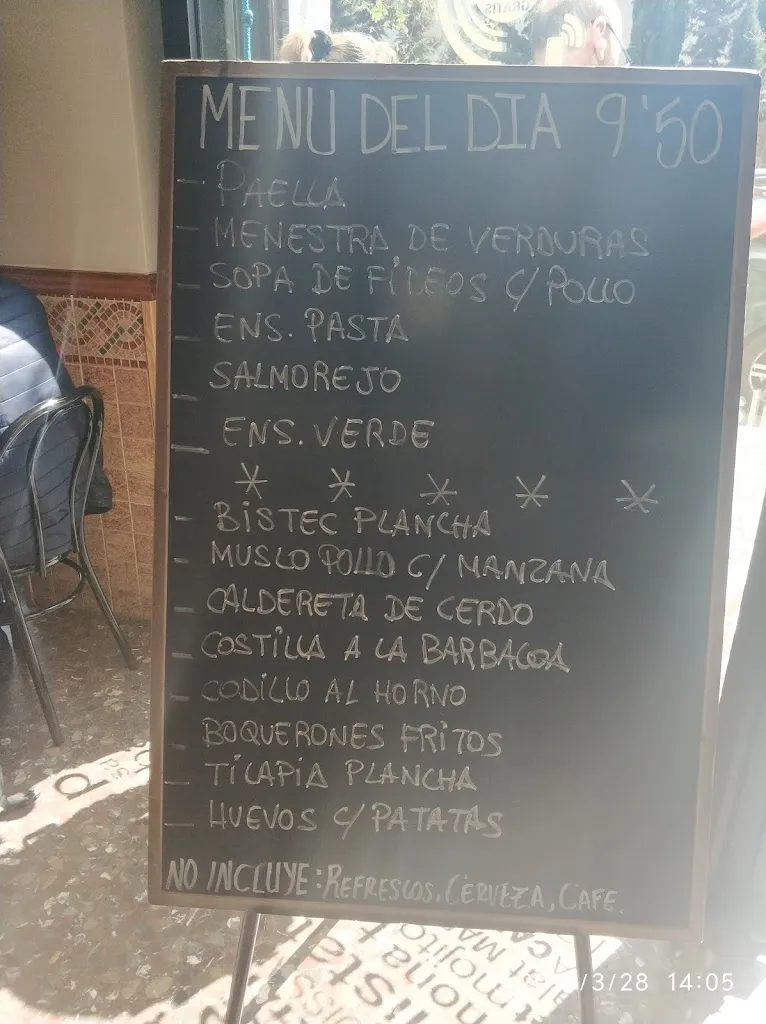 GRATIS
MENU DEL DIA 9'50
- PAELLA
- MENESTRA DE VERDURAS
- SOPA DE FIDEOS C/ POLLO
- ENS. PASTA
- SALMOREJO
- ENS. VERDE
* * * * *
- BISTEC PLANCHA
- MUSLO POLLO C/ MANZANA
- CALDERETA DE CERDO
- COSTILLA A LA BARBACOA
- CODILLO AL HORNO
- BOQUERONES FRITOS
- TILAPIA PLANCHA
- HUEVOS C/ PATATAS
NO INCLUYE: REFRESCOS, CERVEZA, CAFE.
mojito
/3/28 14:05